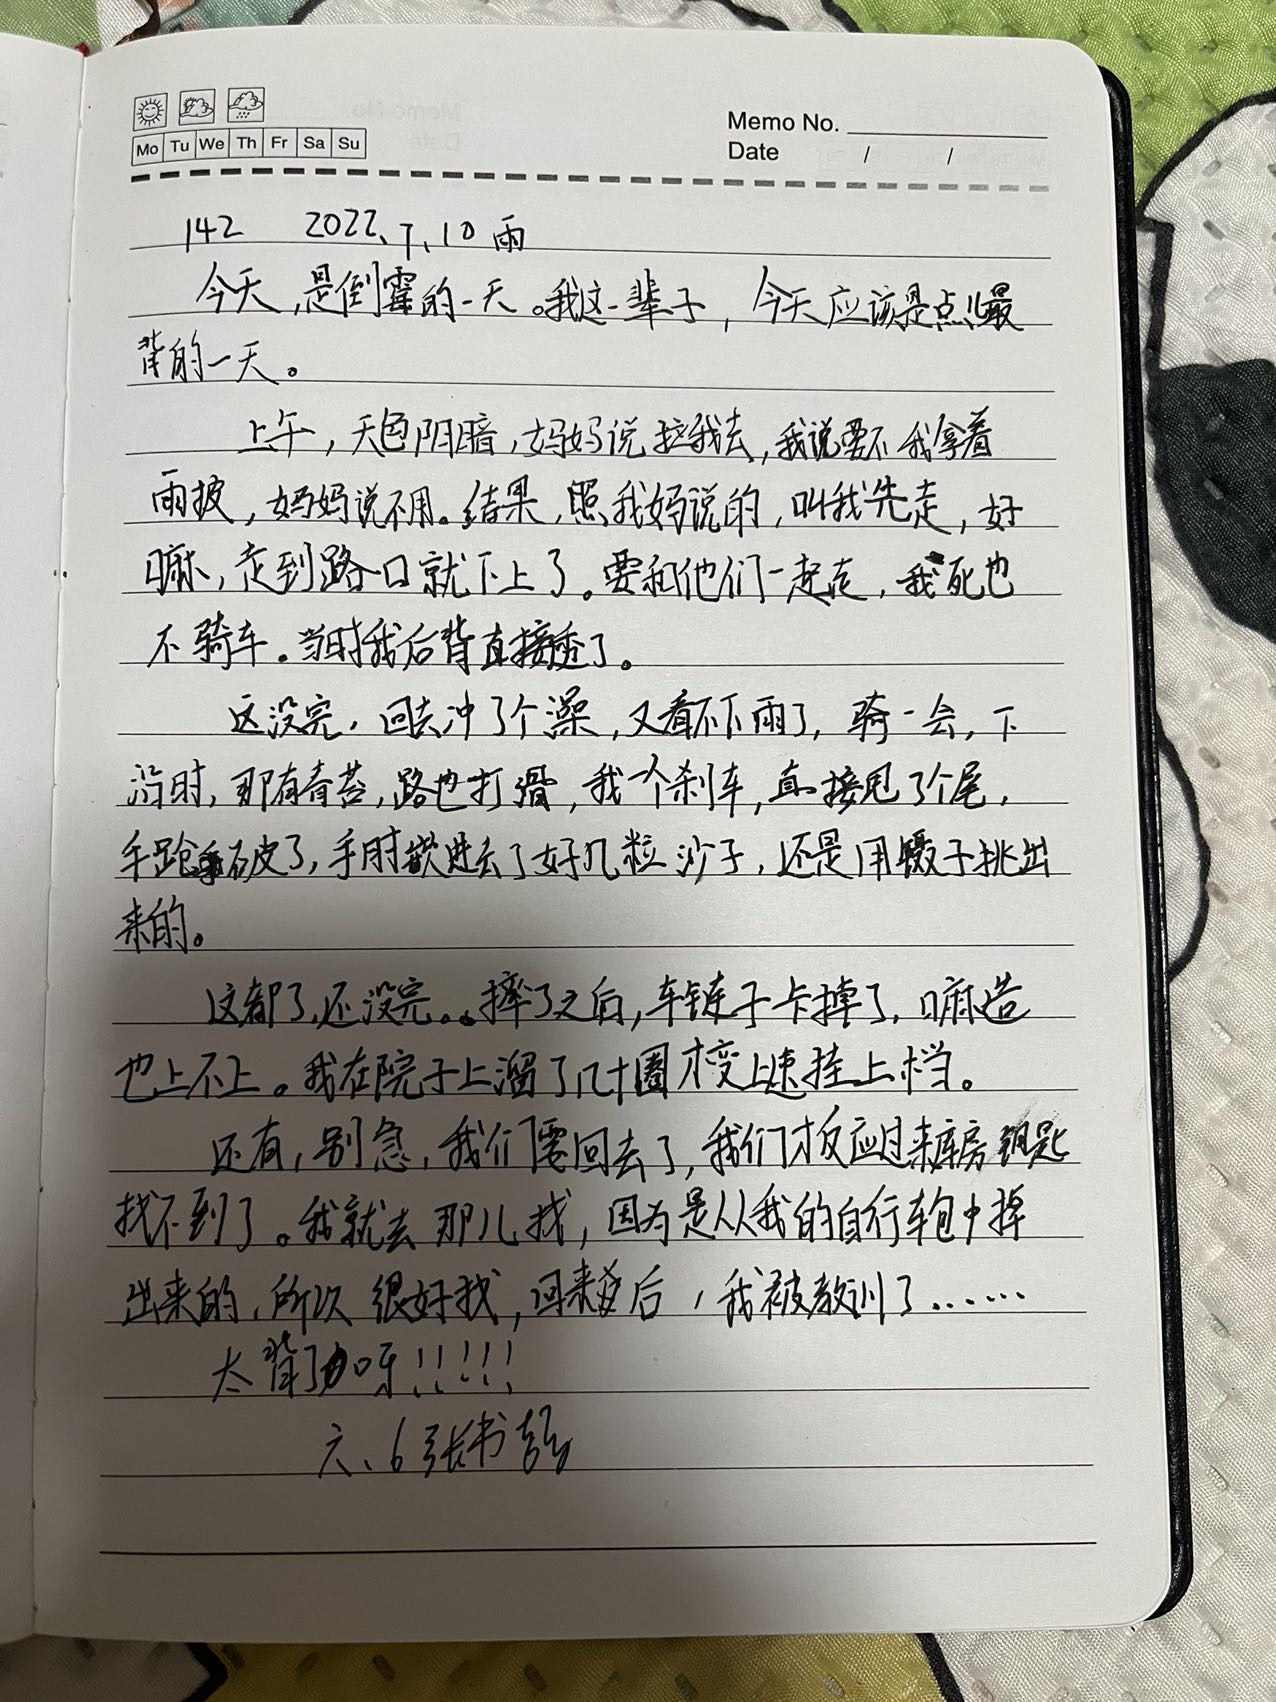 Mo Tu We Th Fr Sa Su
Memo No.
Date / /
142 2022、7、10 雨
今天,是倒霉的一天。我这一辈子,今天应该是点儿最
背的一天。
上午,天色阴暗,妈妈说拉我去,我说要不我拿着
雨披,妈妈说不用。结果,照我妈说的,叫我先走,好
嘛,走到路口就下上了。要和他们一起走,我死也
不骑车。当时我后背直接透了。
这没完,回去冲了个澡,又看不下雨了,骑一会,下
沿时,那有青苔,路也打滑,我一个刹车,直接甩了个尾,
手跄破了,手肘嵌进去了好几粒沙子,还是用镊子挑出
来的。
这都了,还没完。摔了之后,车链子卡掉了,嘛造
也上不上。我在院子上溜了几十圈才变上速挂上档。
还有,别急,我们要回去了,我们才反应过来库房钥匙
找不到了。我就去那儿找,因为是从我的自行车包中掉
出来的,所以很好找,回来后,我被教训了……
太背了呀!!!!!
六、6 张书